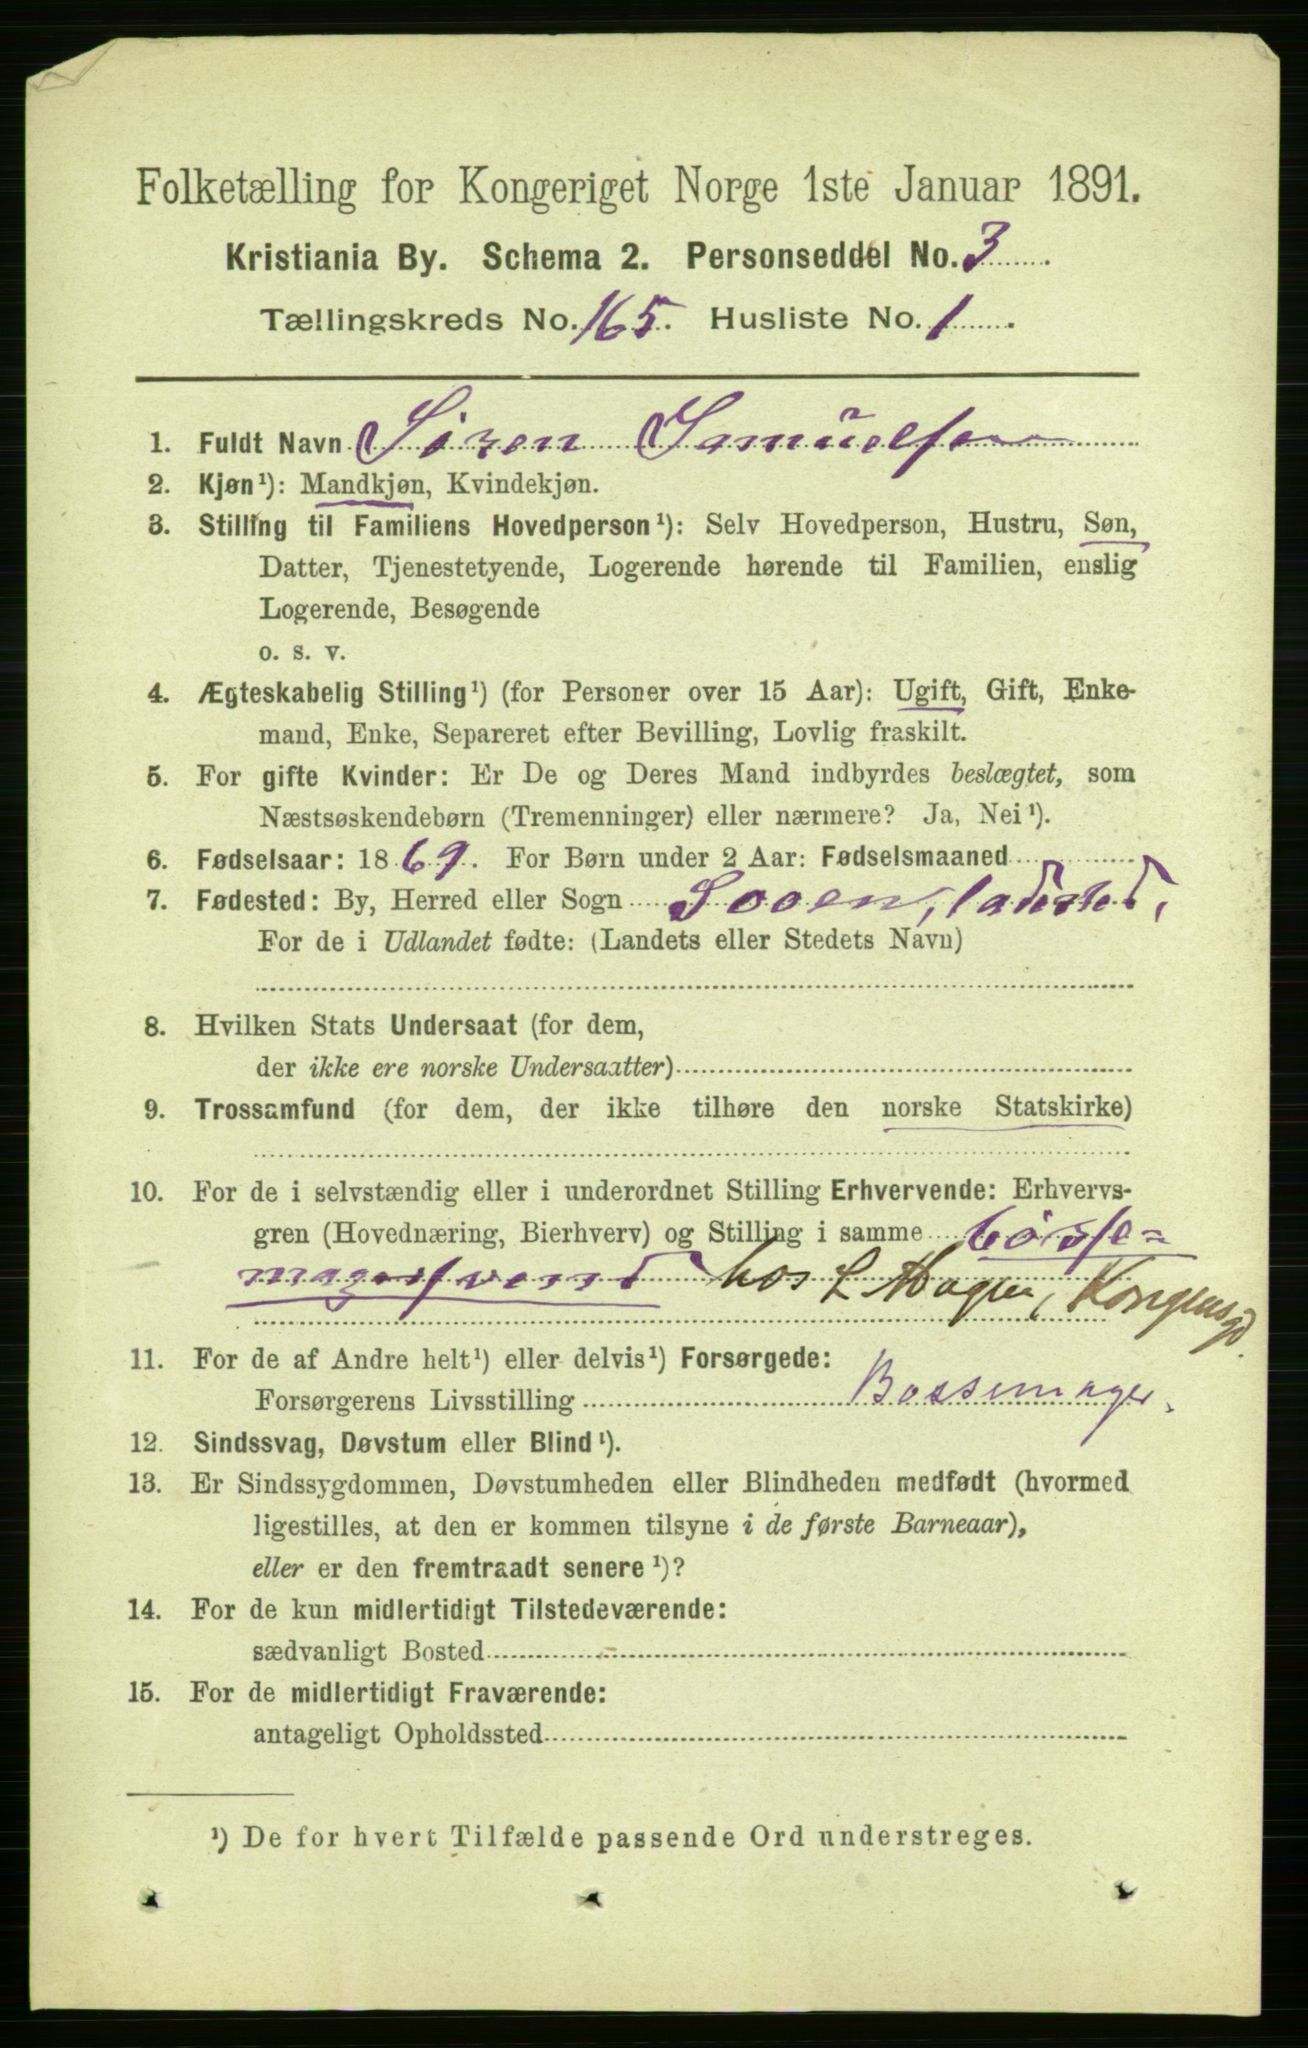 Folketælling for Kongeriget Norge 1ste Januar 1891.
Kristiania By. Schema 2. Personseddel No. 3
Tællingskreds No. 165. Husliste No. 1
1. Fuldt Navn Sören Samuelsen
2. Kjøn¹): Mandkjøn, Kvindekjøn.
3. Stilling til Familiens Hovedperson¹): Selv Hovedperson, Hustru, Søn,
Datter, Tjenestetyende, Logerende hørende til Familien, enslig
Logerende, Besøgende
o. s. v.
4. Ægteskabelig Stilling¹) (for Personer over 15 Aar): Ugift, Gift, Enke-
mand, Enke, Separeret efter Bevilling, Lovlig fraskilt.
5. For gifte Kvinder: Er De og Deres Mand indbyrdes beslægtet, som
Næstsøskendebørn (Tremenninger) eller nærmere? Ja, Nei¹).
6. Fødselsaar: 1869. For Børn under 2 Aar: Fødselsmaaned
7. Fødested: By, Herred eller Sogn Sooen, ladested,
For de i Udlandet fødte: (Landets eller Stedets Navn)
8. Hvilken Stats Undersaat (for dem,
der ikke ere norske Undersaatter)
9. Trossamfund (for dem, der ikke tilhøre den norske Statskirke)
10. For de i selvstændig eller i underordnet Stilling Erhvervende: Erhvervs-
gren (Hovednæring, Bierhverv) og Stilling i samme bösse=
magersvend hos L Hagen, Kongensgd.
11. For de af Andre helt¹) eller delvis¹) Forsørgede:
Forsørgerens Livsstilling Bossemager.
12. Sindssvag, Døvstum eller Blind¹).
13. Er Sindssygdommen, Døvstumheden eller Blindheden medfødt (hvormed
ligestilles, at den er kommen tilsyne i de første Barneaar),
eller er den fremtraadt senere¹)?
14. For de kun midlertidigt Tilstedeværende:
sædvanligt Bosted
15. For de midlertidigt Fraværende:
antageligt Opholdssted
¹) De for hvert Tilfælde passende Ord understreges.